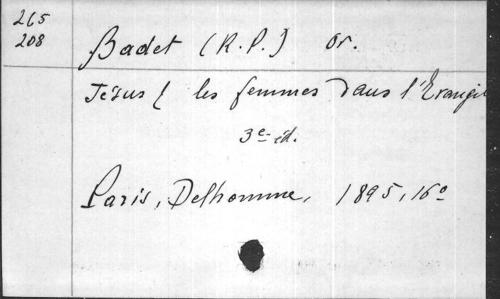 265
208
Badet (R.P.) or.
Jésus & les femmes dans l'Evangil
3e éd.
Paris, Delhomme, 1895, 16o